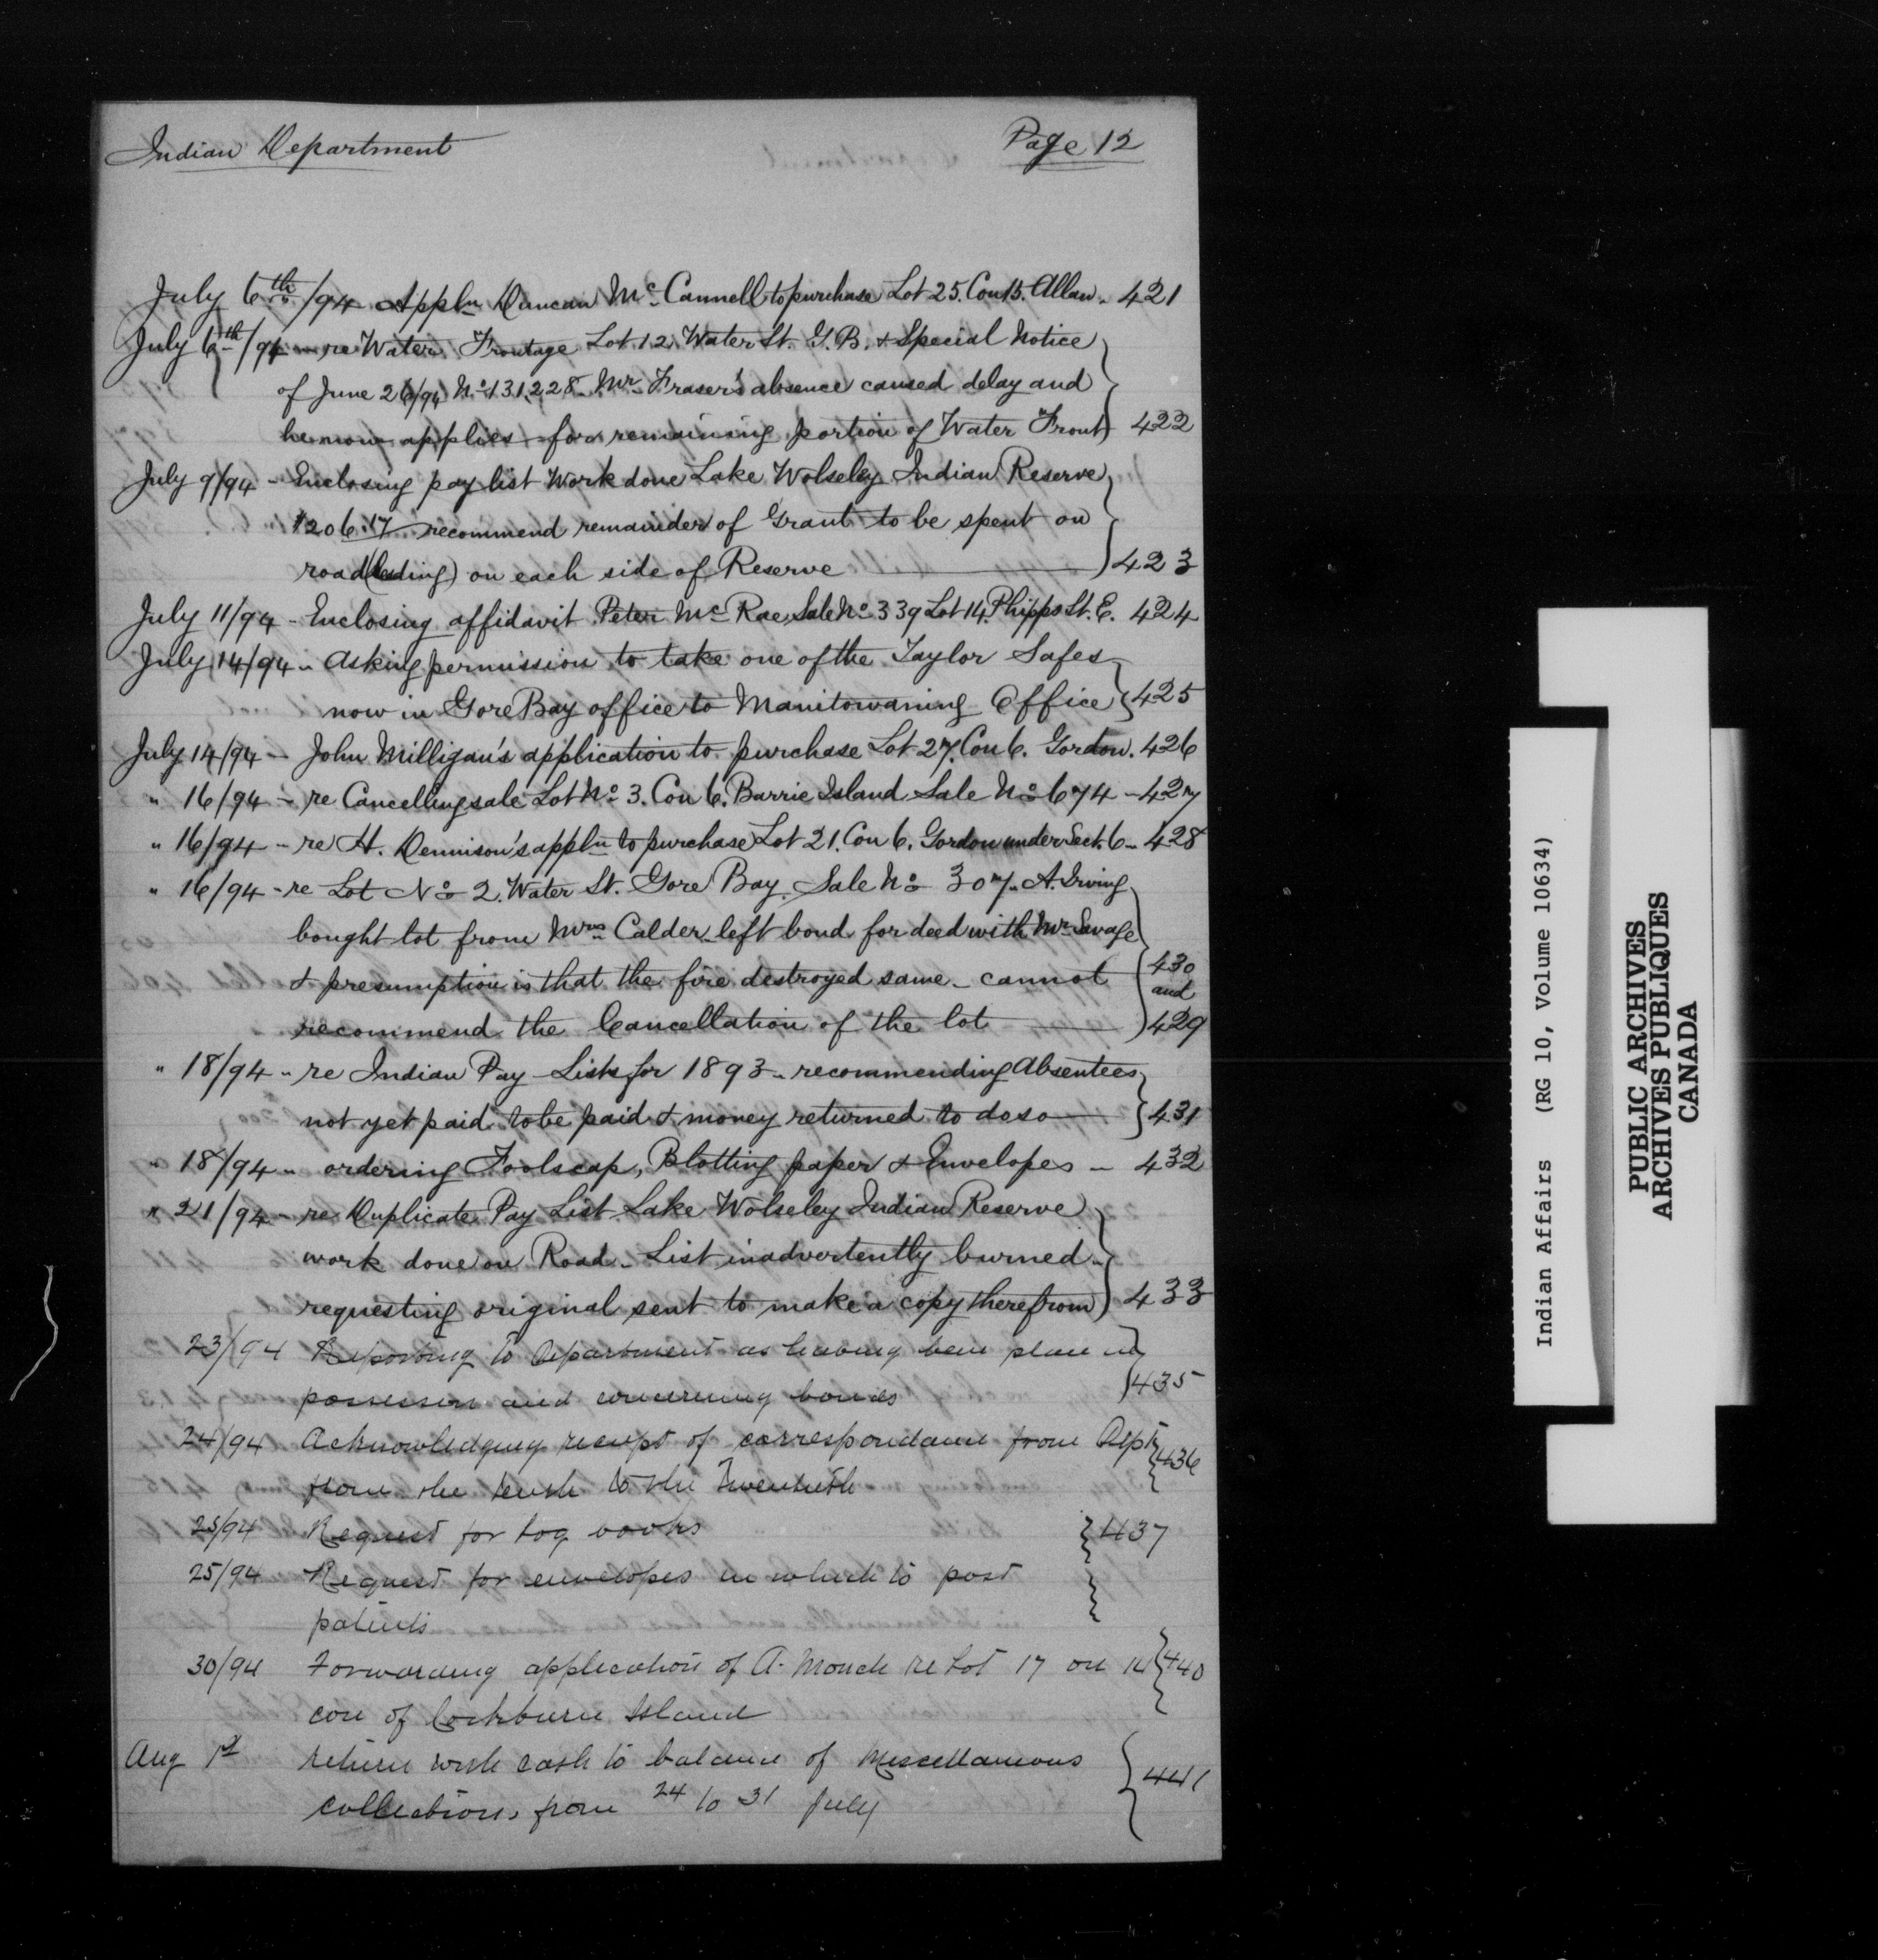 Indian Department Page 12
July 6th/94 Appln Duncan McCannell to purchase Lot 25. Con 13. Allan. 421
July 6th/94 - re Water Frontage Lot 12 Water St. G.B. & Special Notice
of June 26/94 No 131.228. Mr Fraser's absence caused delay and
he now applies for remaining portion of Water Front 422
July 9/94 - Enclosing pay list Work done Lake Wolseley Indian Reserve
$206.17 recommend remainder of Grant to be spent on
road (leading) on each side of Reserve 423
July 11/94 - Enclosing affidavit Peter McRae, Sale No 339 Lot 14. Phipps St. E. 424
July 14/94 - Asking permission to take one of the Taylor Safes
now in Gore Bay office to Manitowaning Office 425
July 14/94 - John Milligan's application to purchase Lot 27. Con 6. Gordon. 426
" 16/94 - re Cancelling sale Lot No 3. Con 6. Barrie Island Sale No 674 - 427
" 16/94 - re H. Dennison's appln to purchase Lot 21. Con 6. Gordon under Sect. 6 - 428
" 16/94 - re Lot No 2. Water St. Gore Bay. Sale No 307. A. Irving
bought lot from Mrs Calder - left bond for deed with Mr Savage
& presumption is that the fire destroyed same - cannot 430
and
recommend the Cancellation of the lot 429
" 18/94 - re Indian Pay Lists for 1893 - recommending Absentees
not yet paid to be paid & money returned to do so 431
" 18/94 - ordering Foolscap, Blotting paper & Envelopes - 432
" 21/94 - re Duplicate Pay List Lake Wolseley Indian Reserve
work done on Road - List inadvertently burned -
requesting original sent to make a copy therefrom 433
23/94 Reporting to Department as having been place in
possession and concerning bonds 435
24/94 Acknowledging receipt of correspondance from Dept 436
from the tenth to the Twentieth
25/94 Request for books 437
25/94 Request for envelopes in which to post
patents
30/94 Forwarding application of A. re Lot 17 on 14 440
con of Cockburn Island
Aug 1st Return with cash to balance of Miscellaneous
collections from 24 to 31 July 441
Indian Affairs (RG 10, Volume 10634)
PUBLIC ARCHIVES
ARCHIVES PUBLIQUES
CANADA